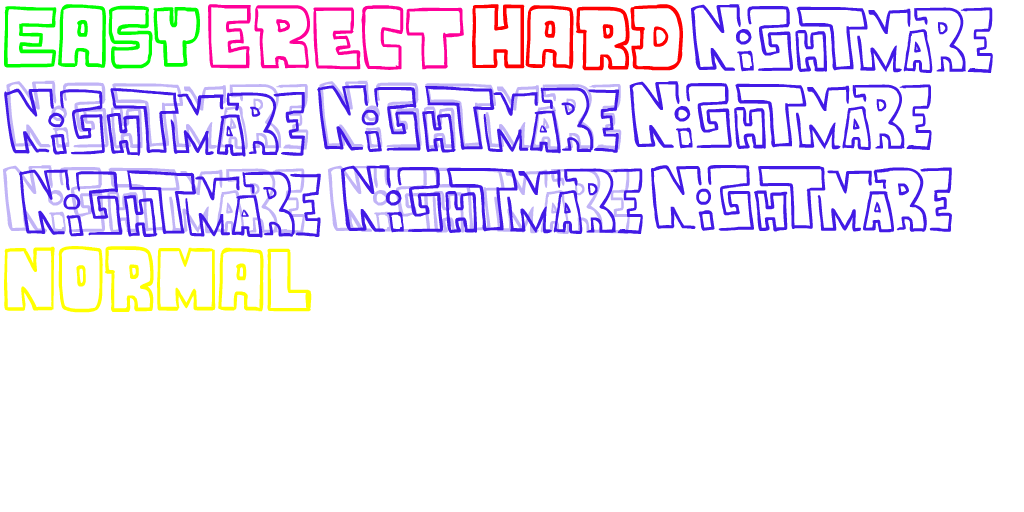 EASY ERECT HARD NIGHTMARE
NIGHTMARE NIGHTMARE NIGHTMARE
NIGHTMARE NIGHTMARE NIGHTMARE
NORMAL